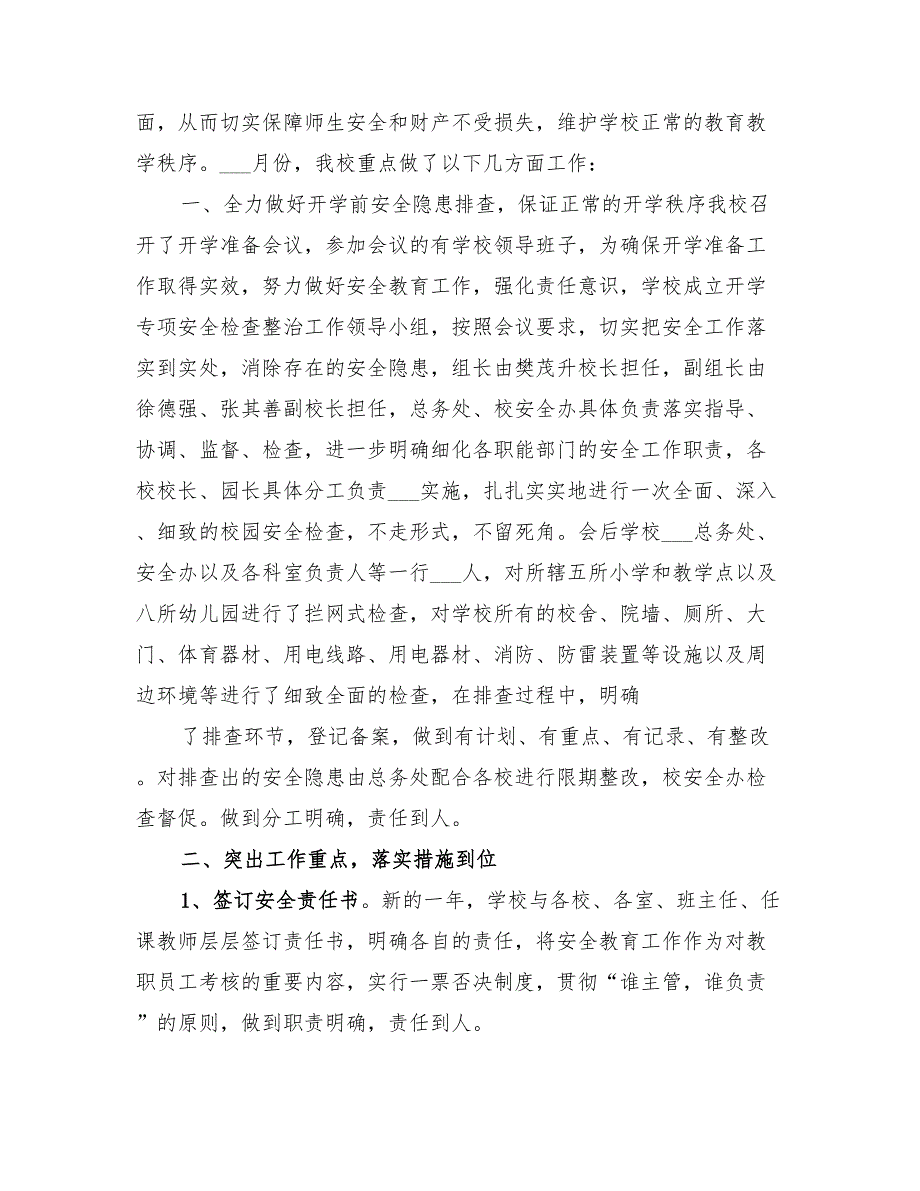 面，从而切实保障师生安全和财产不受损失，维护学校正常的教育教
学秩序。___月份，我校重点做了以下几方面工作：
一、全力做好开学前安全隐患排查，保证正常的开学秩序我校召
开了开学准备会议，参加会议的有学校领导班子，为确保开学准备工
作取得实效，努力做好安全教育工作，强化责任意识，学校成立开学
专项安全检查整治工作领导小组，按照会议要求，切实把安全工作落
实到实处，消除存在的安全隐患，组长由樊茂升校长担任，副组长由
徐德强、张其善副校长担任，总务处、校安全办具体负责落实指导、
协调、监督、检查，进一步明确细化各职能部门的安全工作职责，各
校校长、园长具体分工负责___实施，扎扎实实地进行一次全面、深入
、细致的校园安全检查，不走形式，不留死角。会后学校___总务处、
安全办以及各科室负责人等一行___人，对所辖五所小学和教学点以及
八所幼儿园进行了拦网式检查，对学校所有的校舍、院墙、厕所、大
门、体育器材、用电线路、用电器材、消防、防雷装置等设施以及周
边环境等进行了细致全面的检查，在排查过程中，明确
了排查环节，登记备案，做到有计划、有重点、有记录、有整改
。对排查出的安全隐患由总务处配合各校进行限期整改，校安全办检
查督促。做到分工明确，责任到人。
二、突出工作重点，落实措施到位
1、签订安全责任书。新的一年，学校与各校、各室、班主任、任
课教师层层签订责任书，明确各自的责任，将安全教育工作作为对教
职员工考核的重要内容，实行一票否决制度，贯彻“谁主管，谁负责
”的原则，做到职责明确，责任到人。